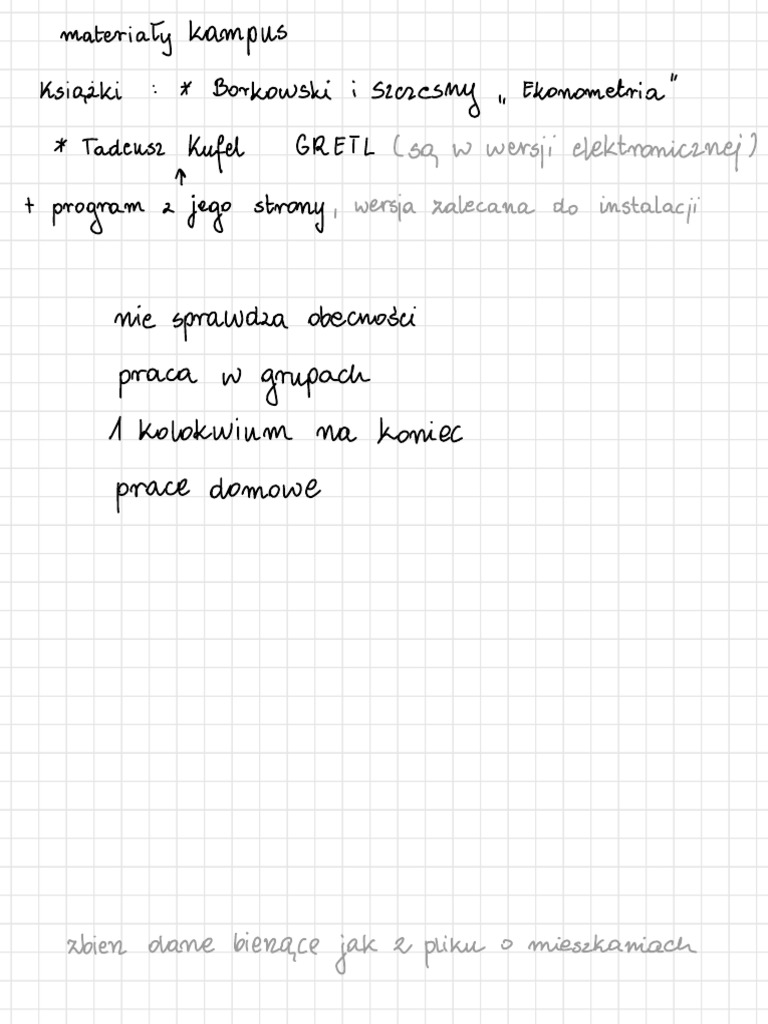 materiały kampus
Książki : * Borkowski i Szczesny „Ekonometria"
* Tadeusz Kufel GRETL (są w wersji elektronicznej)
↑
+ program z jego strony, wersja zalecana do instalacji
nie sprawdza obecności
praca w grupach
1 kolokwium na koniec
prace domowe
zbierz dane bieżące jak z pliku o mieszkaniach